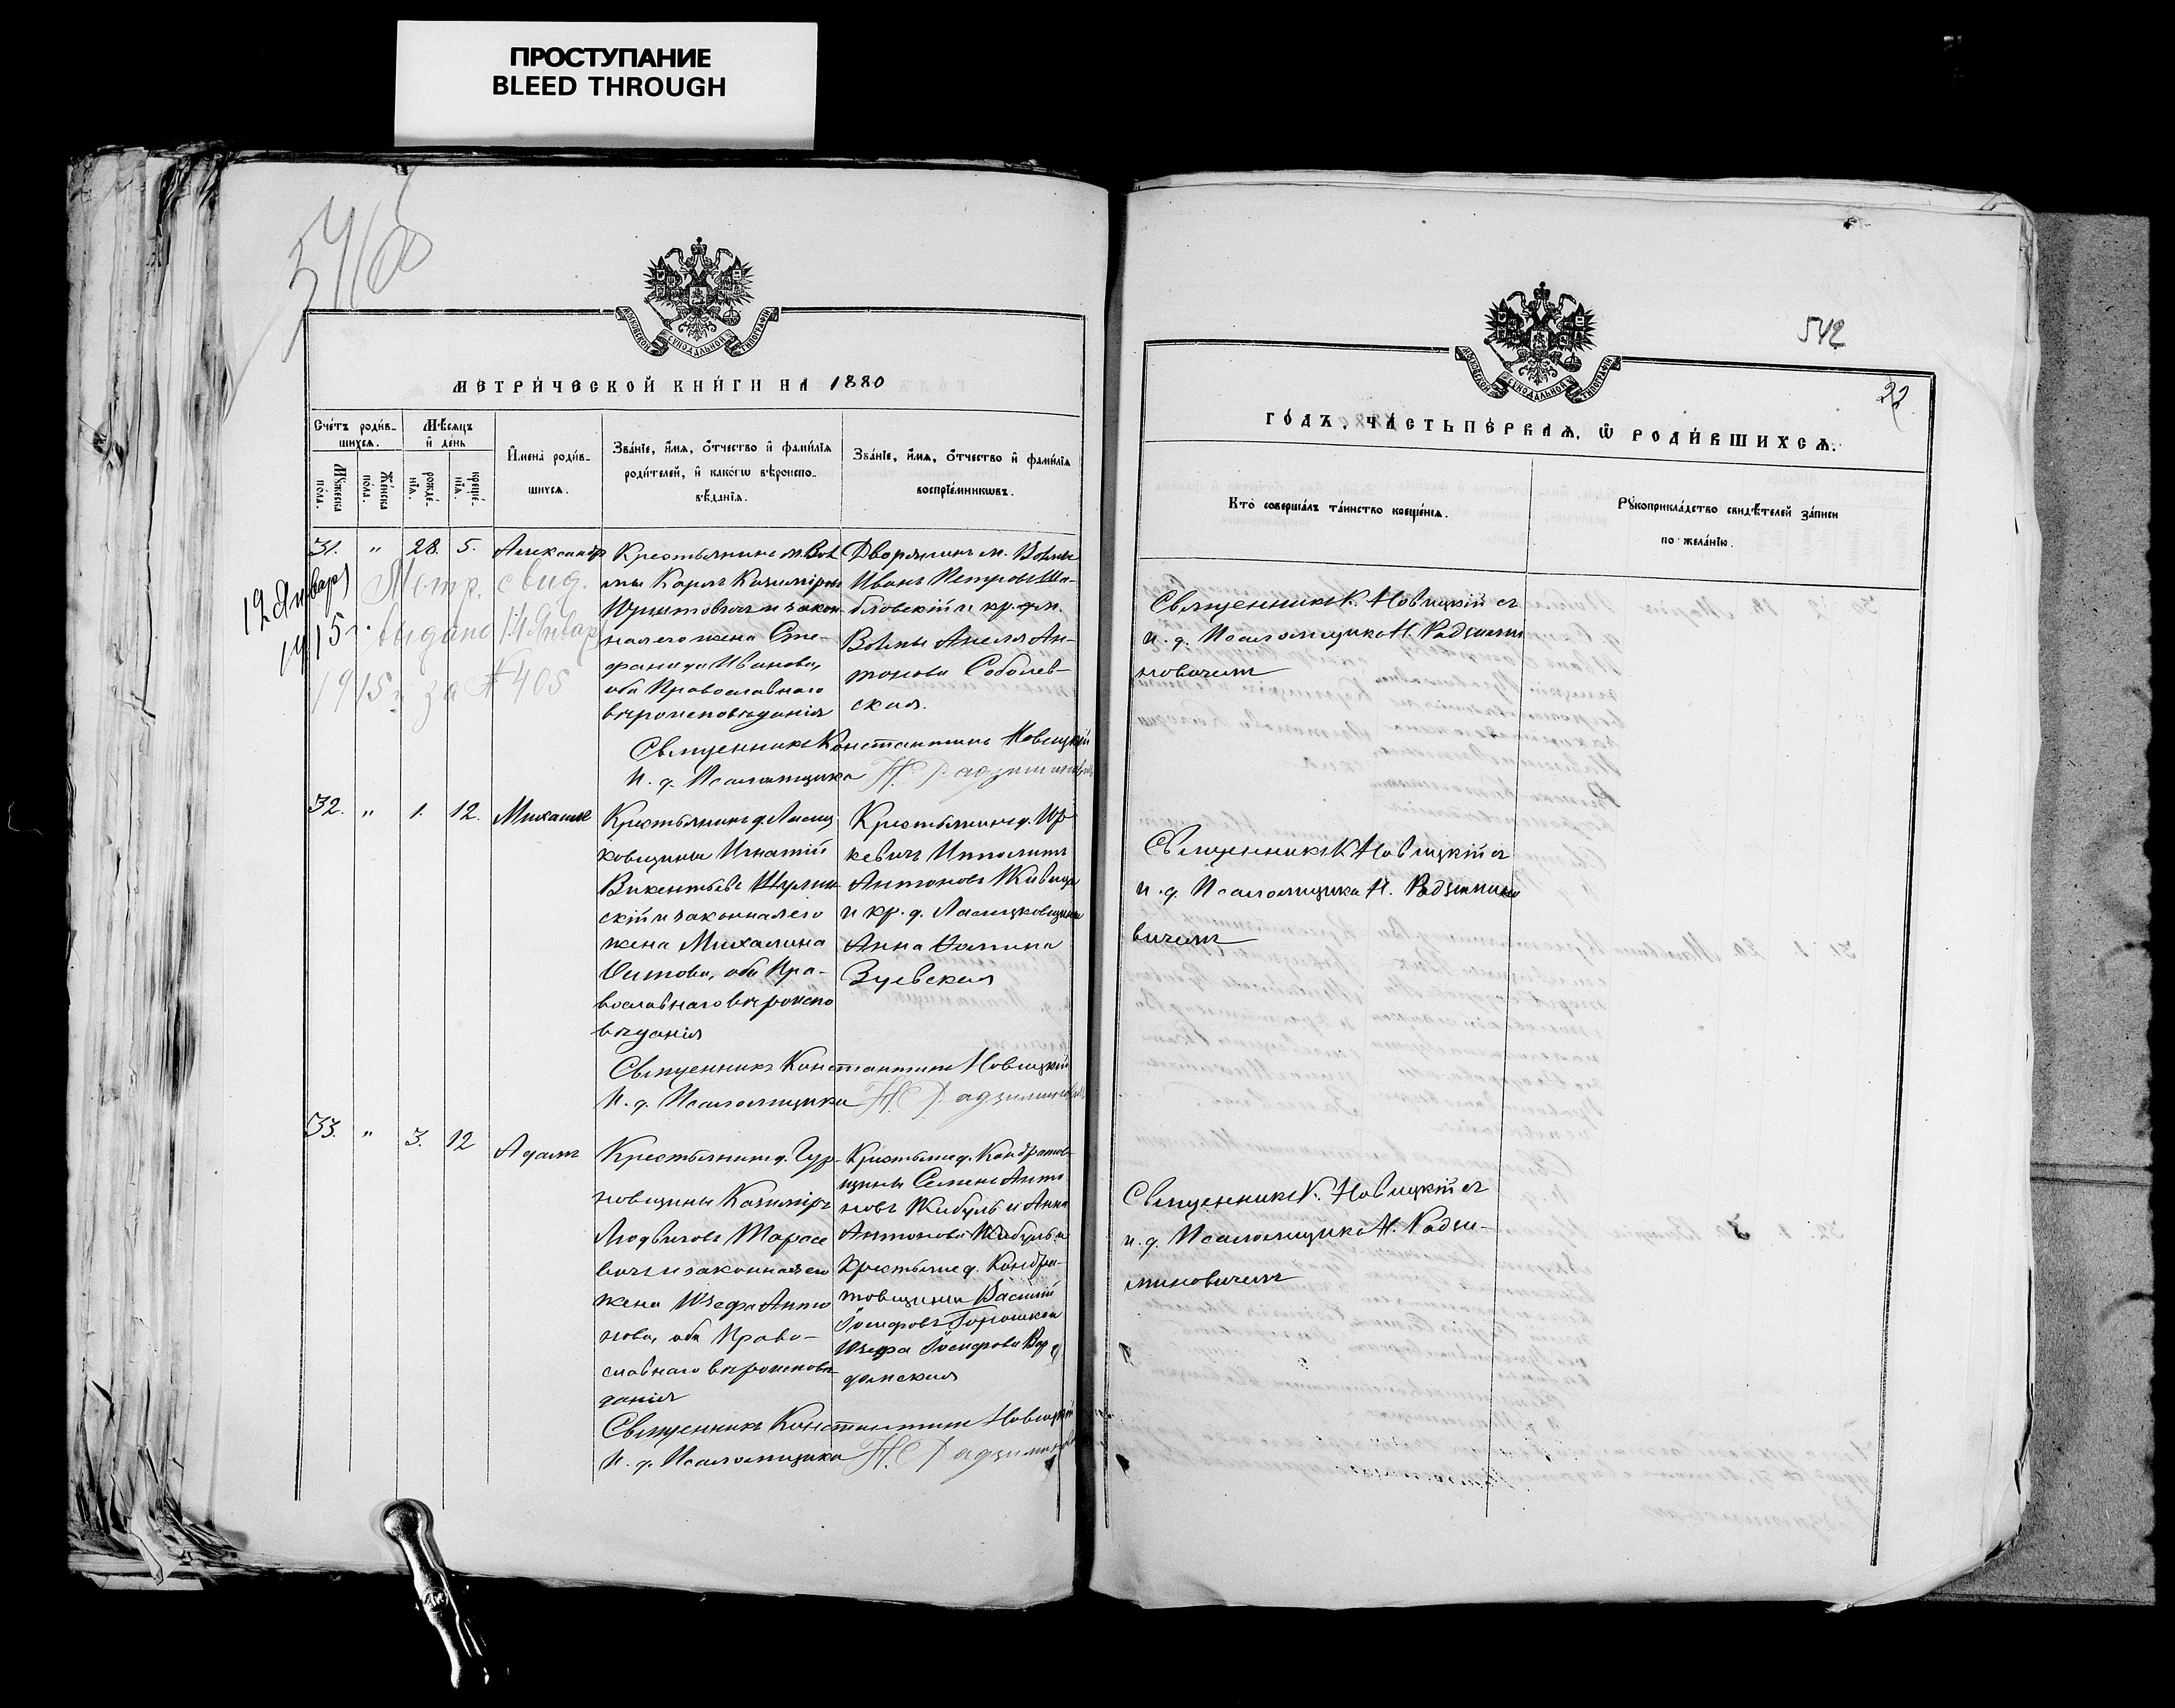 ПРОСТУПАНИЕ
BLEED THROUGH
МОСКОВСКОЙ СѴНОДАЛЬНОЙ ТИПОГРАФІИ
МЕТРИ́ЧЕСКОЙ КНИ́ГИ НА 1880
Сче́тъ роди́в-
шихсѧ.
Мѣ́сѧцъ
и҆ де́нь
Мꙋ́жеска
по́ла.
Же́нска
по́ла.
рожде́-
нїѧ.
креще́-
нїѧ.
И҆мена̀ роди́в-
шихсѧ.
Зва́нїе, и҆́мѧ, ѻ҆́тчество и҆ фами́лїѧ
роди́телей, и҆ како́гѡ вѣроиспо-
вѣ́данїѧ.
Зва́нїе, и҆́мѧ, ѻ҆́тчество и҆ фами́лїѧ
воспрїе́мникѡвъ.
31. " 28. 5. Александръ
12 Января
1915 г.
Метр. свид.
выдано 14 Января
1915 г. за № 405
Крестьянинъ м. Вол
мы Карлъ Казиміровъ
и закон
ная его жена Сте-
фанида Иванова,
оба Православнаго
вѣроисповѣданія
Дворянинъ м. Волмы
Иванъ Петровъ Ша-
бловскій и кр. м.
Волмы Анеля Ан-
тонова Соболев-
ская.
Священникъ Константинъ Новицкій
И. д. Псаломщика Н. Радзиминовичъ
32. " 1. 12. Михаилъ
Крестьянинъ д. Ласиц
ковщины Игнатій
Викентьевъ
скій и законная его
жена Михалина
Осипова, оба Пра-
вославнаго вѣроиспо
вѣданія
Крестьянинъ д. Юр
кевичъ Ипполитъ
Антоновъ Живица
и кр. д. Ласицковщины
Анна Фомина
Зуевская
Священникъ Константинъ Новицкій
И. д. Псаломщика Н. Радзиминовичъ
33. " 3. 12 Адамъ
Крестьянинъ д. Гур-
новщины Казиміръ
Людвиговъ Тарасе
вичъ и законная его
жена Юзефа Анто
нова, оба Право-
славнаго вѣроисповѣ
данія
Крестьяне д. Кондратов
щины Семенъ Анто
новъ Жибуль и Анна
Антонова Жибуль и
Крестьяне д. Кондра-
товщины Василій
Іосифовъ Горошко и
Юзефа Іосифова
Священникъ Константинъ Новицкій
И. д. Псаломщика Н. Радзиминовичъ
542
22
МОСКОВСКОЙ СѴНОДАЛЬНОЙ ТИПОГРАФІИ
ГО́ДЪ, ЧА́СТЬ ПЕ́РВАѦ, Ѽ РОДИ́ВШИХСѦ.
Кто̀ соверша́лъ та́инство креще́нїѧ.
Рꙋкоприкла́дство свидѣ́телей за́писи
по жела́нїю.
Священникъ К. Новицкій съ
и. д. Псаломщика Н. Радзими
новичемъ
Священникъ К. Новицкій съ
и. д. Псаломщика Н. Радзимино
вичемъ
Священникъ К. Новицкій съ
и. д. Псаломщика Н. Радзи-
миновичемъ